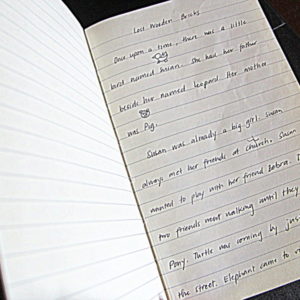 Lost Wooden Bricks
Once upon a time, there was a little
bird named Susan. She had her father
beside her named leopard. Her mother
was Pig.
Susan was already a big girl. Susan
always met her friends at church. Susan
wanted to play with her friend Zebra.
two friends went walking until they
Pony. Turtle was coming by
the street. Elephant came to